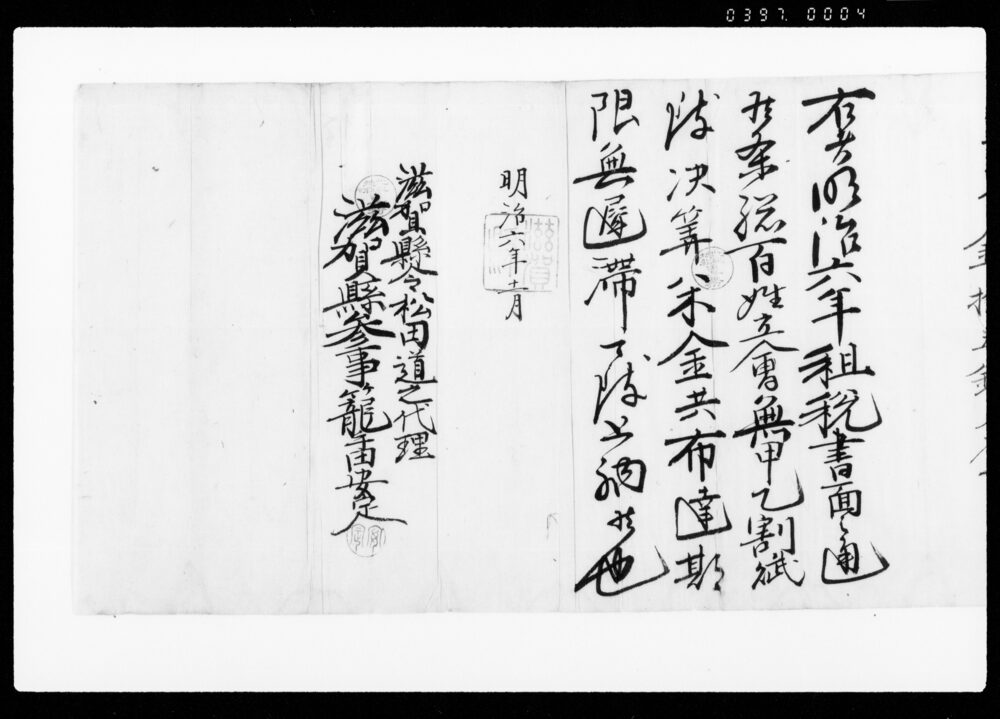 0397. 0004
右者明治六年租税書面之通
相
条総百姓立会無甲乙割賦
致決算米金共布達期
限無遅滞可致上納者也
明治六年十一月
滋賀
滋賀縣令松田道之代理
滋賀縣参事籠手田安定